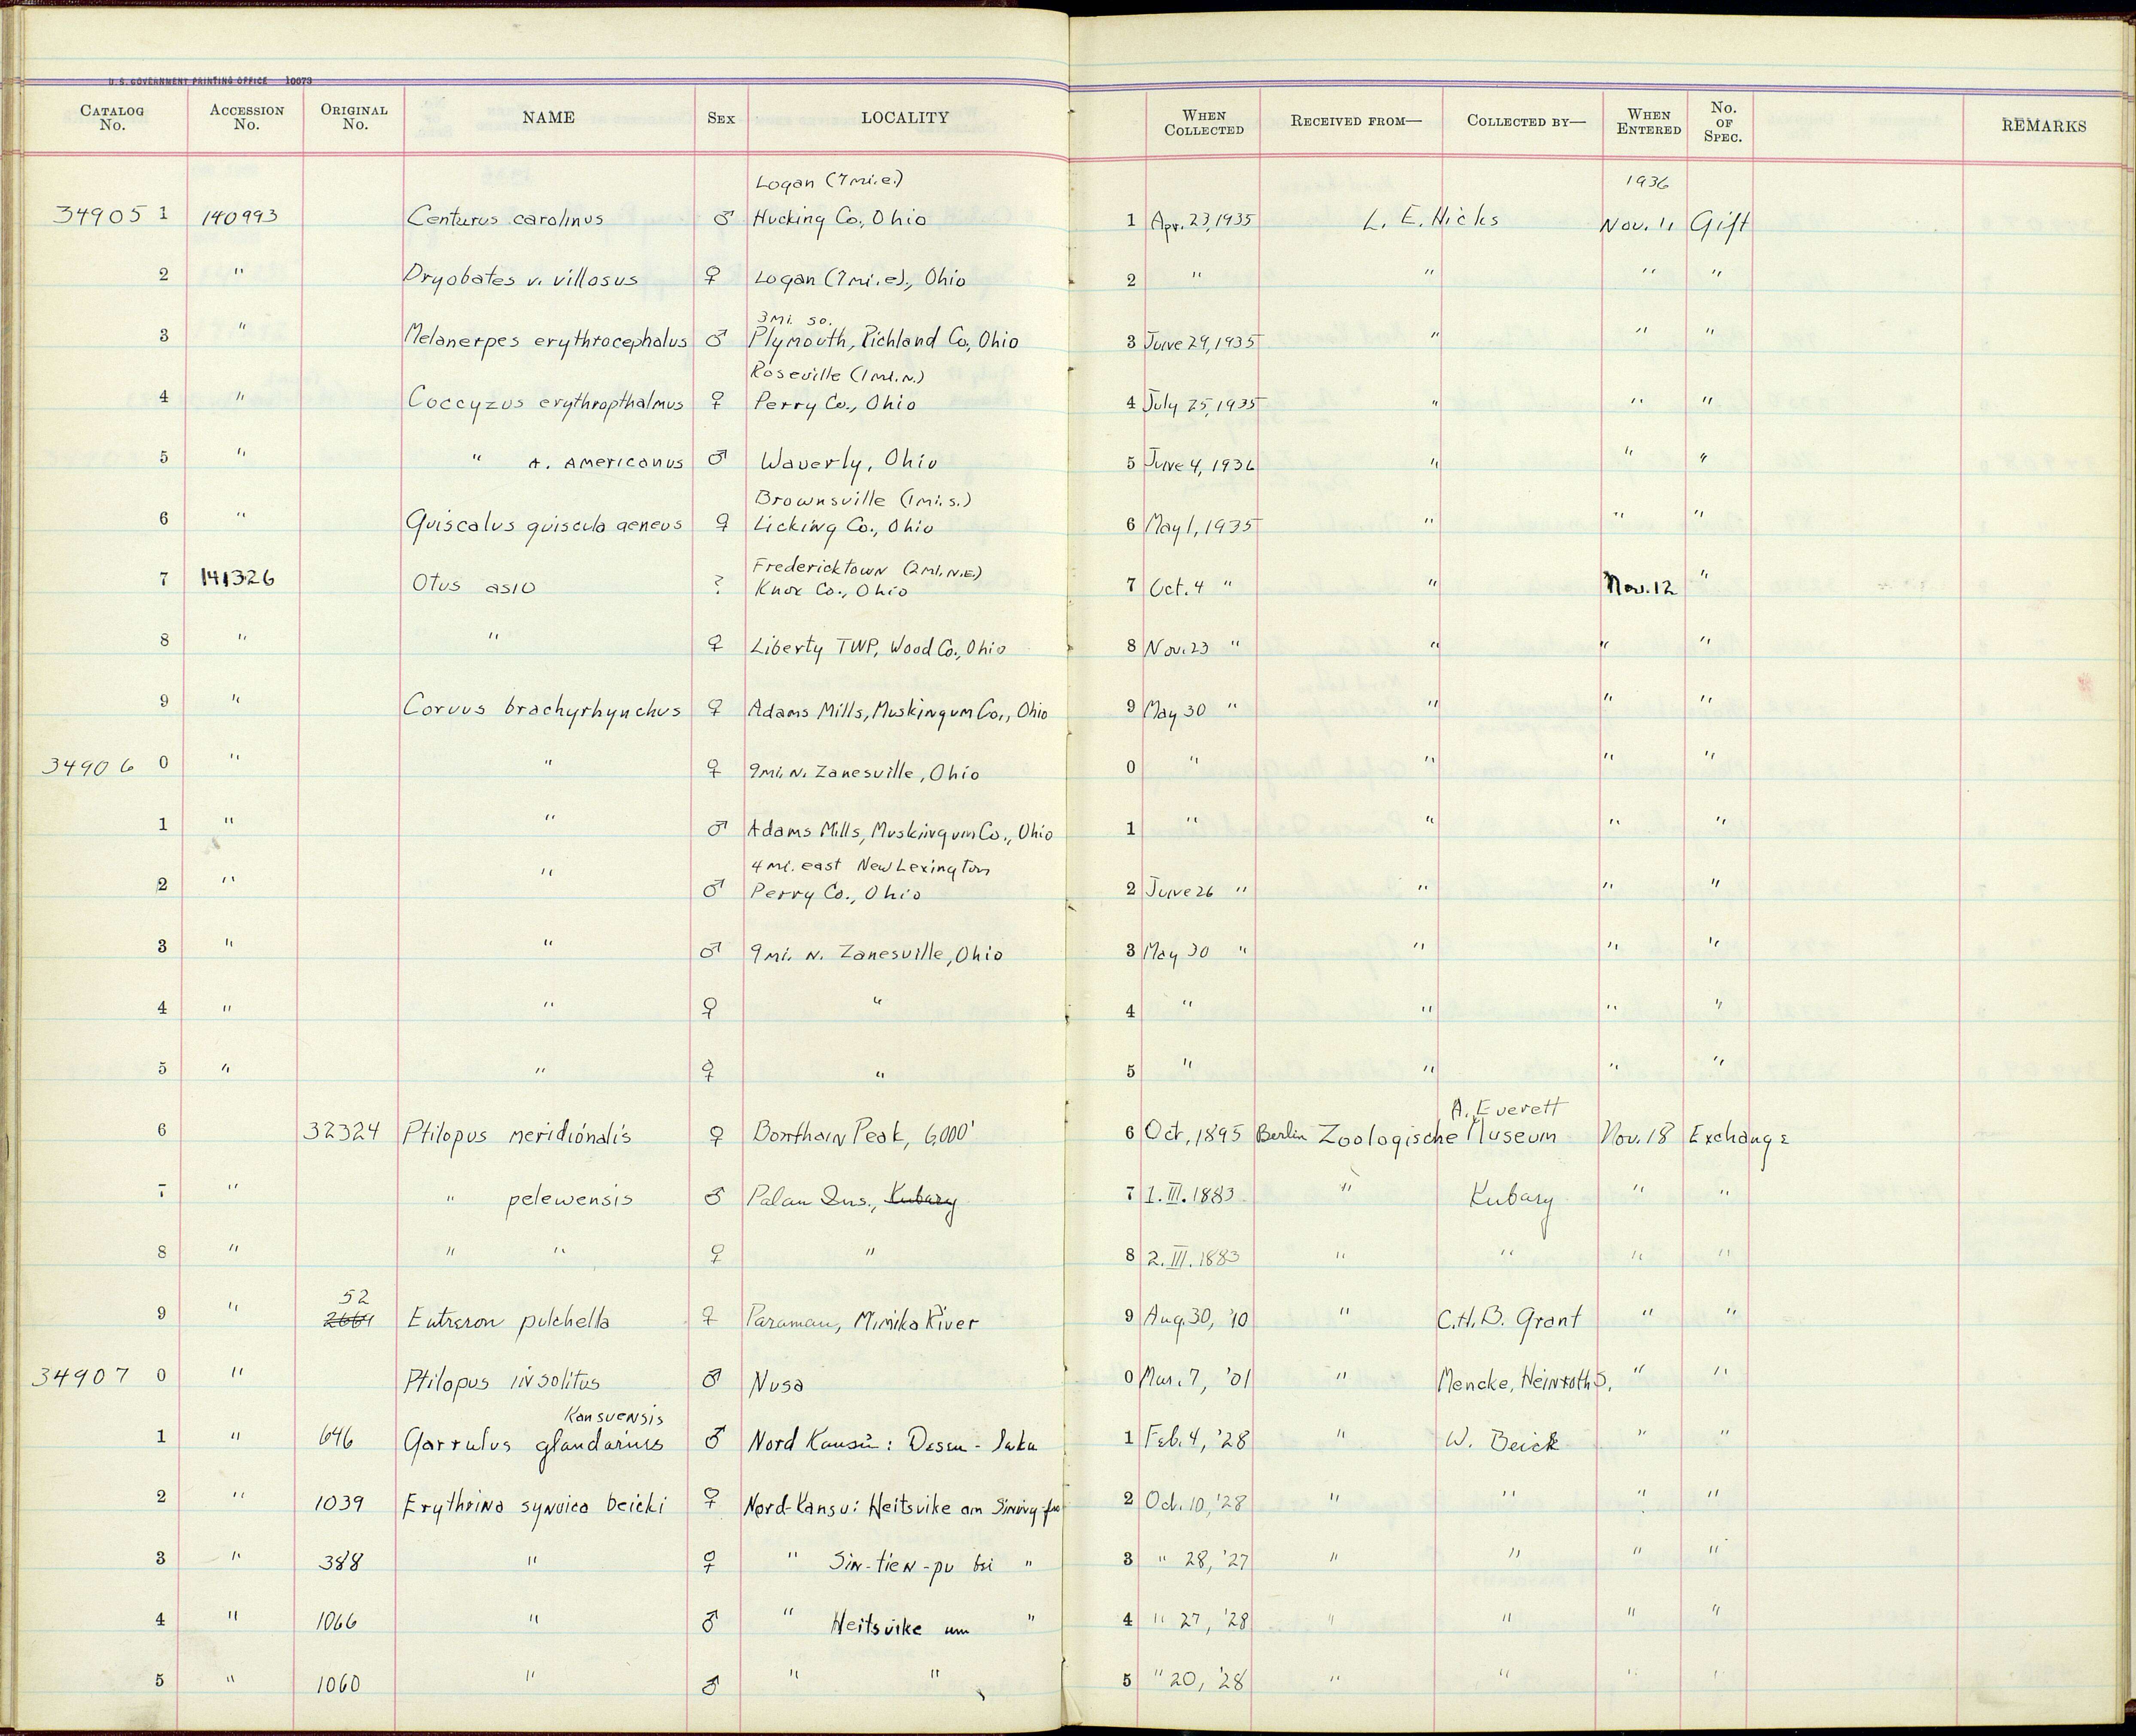 U. S. GOVERNMENT PRINTING OFFICE 10073
CATALOG No. ACCESSION No. ORIGINAL No. NAME SEX LOCALITY WHEN COLLECTED RECEIVED FROM— COLLECTED BY— WHEN ENTERED No. OF SPEC. REMARKS
Logan (7mi.e.) 1936
34905 1 140993 Centurus carolinus ♂ Hocking Co., Ohio 1 Apr. 23, 1935 L. E. Hicks Nov. 11 Gift
2 " Dryobates v. villosus ♀ Logan (7mi.e)., Ohio 2 " " " "
3mi. so.
3 " Melanerpes erythrocephalus ♂ Plymouth, Richland Co., Ohio 3 June 29, 1935 " " "
Roseville (1mi.N.)
4 " Coccyzus erythropthalmus ♀ Perry Co., Ohio 4 July 25, 1935 " " "
5 " " A. Americanus ♂ Waverly, Ohio 5 June 4, 1936 " " "
Brownsville (1mi.s.)
6 " Quiscalus quiscula aeneus ♀ Licking Co., Ohio 6 May 1, 1935 " " "
Fredericktown (2mi.N.E.)
7 141326 Otus asio ? Knox Co., Ohio 7 Oct. 4 " " Nov. 12 "
8 " " ♀ Liberty TWP, Wood Co., Ohio 8 Nov. 23 " " " "
9 " Corvus brachyrhynchus ♀ Adams Mills, Muskingum Co., Ohio 9 May 30 " " " "
34906 0 " " ♀ 9mi. N. Zanesville, Ohio 0 " " " "
1 " " ♂ Adams Mills, Muskingum Co., Ohio 1 " " " "
4 mi. east New Lexington
2 " " ♂ Perry Co., Ohio 2 June 26 " " " "
3 " " ♂ 9mi. N. Zanesville, Ohio 3 May 30 " " " "
4 " " ♀ " 4 " " " "
5 " " ♀ " 5 " " " "
A. Everett
6 32324 Ptilopus meridionalis ♀ Bonthain Peak, 6,000' 6 Oct, 1895 Berlin Zoologische Museum Nov. 18 Exchange
7 " " pelewensis ♂ Palau Ins., Kubary 7 1. III. 1883 " Kubary " "
8 " " " ♀ " 8 2. III. 1883 " " " "
52
9 " Eutreron pulchella ♀ Paramau, Mimika River 9 Aug. 30, '10 " C.H.B. Grant " "
34907 0 " Ptilopus insolitus ♂ Nusa 0 Mar. 7, '01 " Mencke, Heinroth S. " "
Kansuensis
1 " 646 Garrulus glandarius ♂ Nord Kansu: 1 Feb. 4, '28 " W. Beick " "
2 " 1039 Erythrina synoica beicki ♀ Nord-Kansu: Heitsuike am Sining-fu 2 Oct. 10, '28 " " " "
3 " 388 " ♀ " Sin-tien-pu bei " 3 " 28, '27 " " " "
4 " 1066 " ♂ " Heitsuike am " 4 " 27, '28 " " " "
5 " 1060 " ♂ " " 5 " 20, '28 " " " "